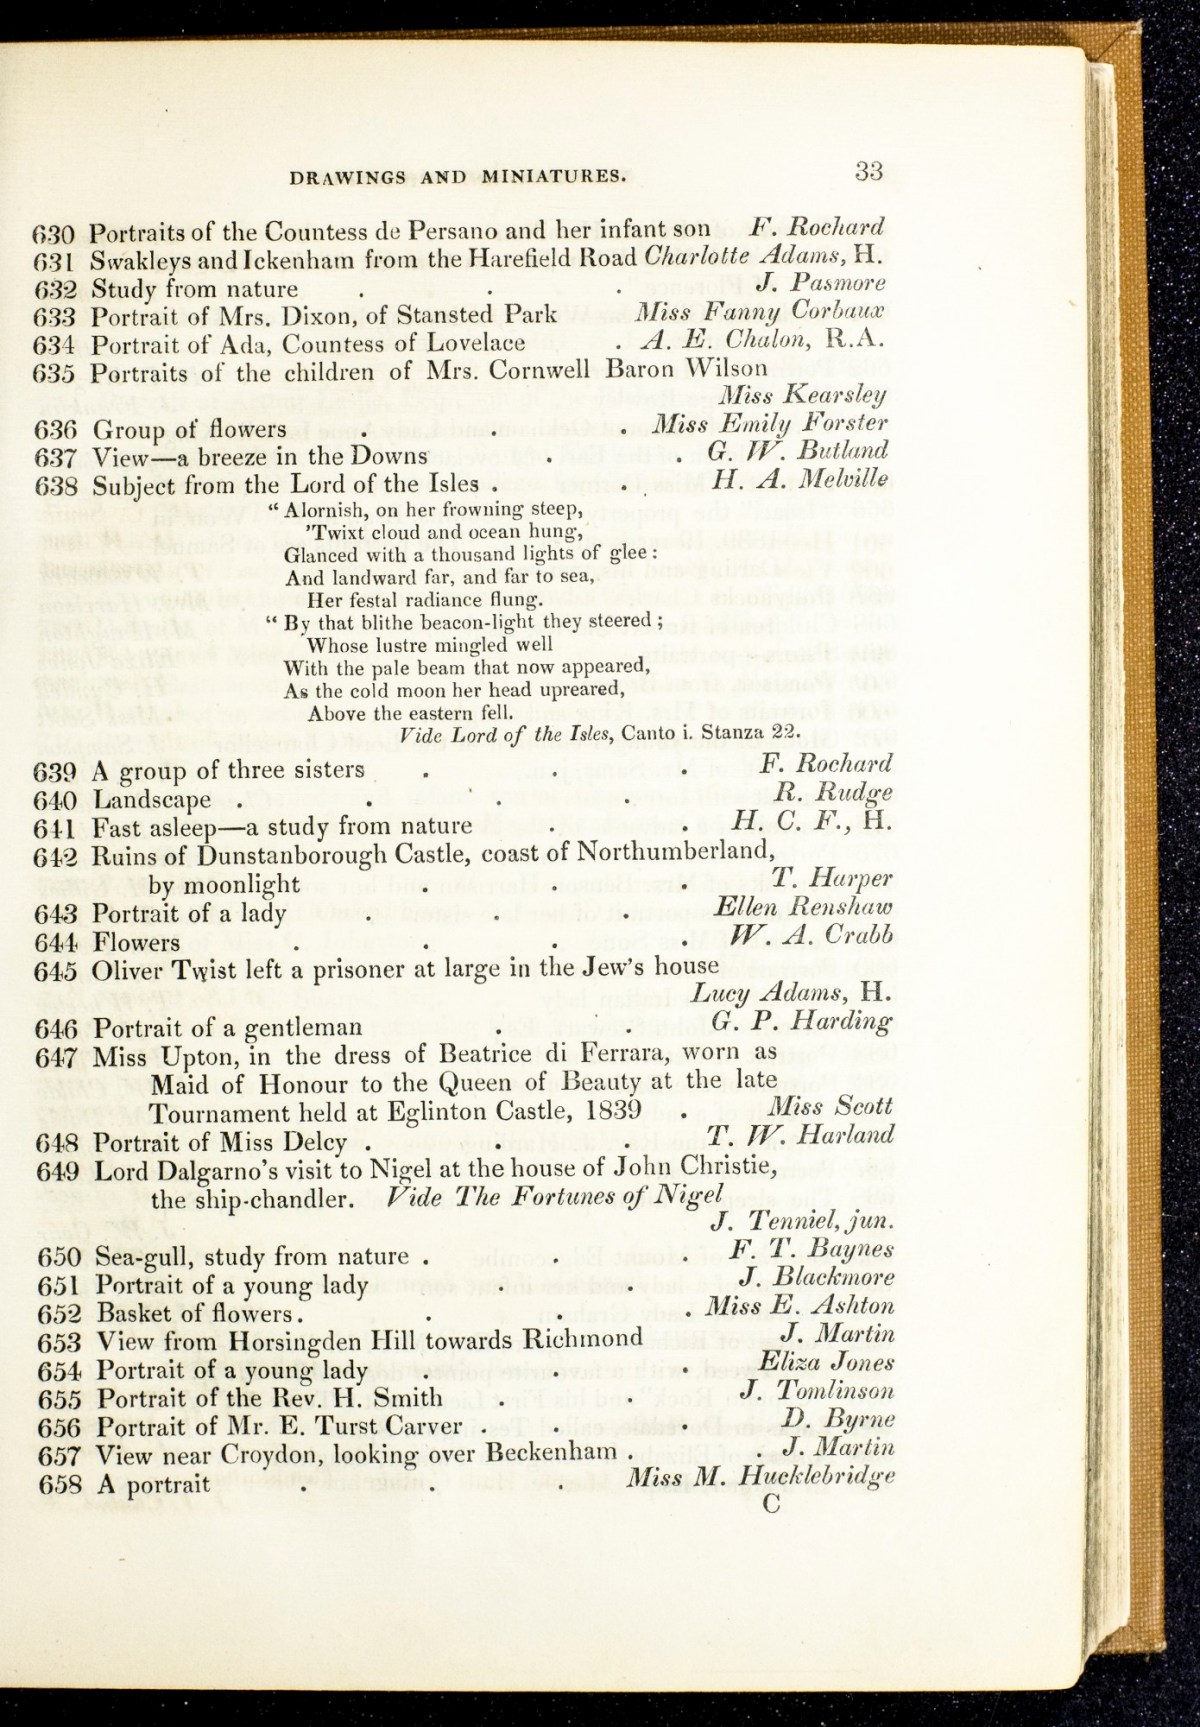 DRAWINGS AND MINIATURES. 33
630 Portraits of the Countess de Persano and her infant son F. Rochard
631 Swakleys and Ickenham from the Harefield Road Charlotte Adams, H.
632 Study from nature . . . J. Pasmore
633 Portrait of Mrs. Dixon, of Stansted Park Miss Fanny Corbaux
634 Portrait of Ada, Countess of Lovelace . A. E. Chalon, R.A.
635 Portraits of the children of Mrs. Cornwell Baron Wilson
Miss Kearsley
636 Group of flowers . . . Miss Emily Forster
637 View—a breeze in the Downs . . G. W. Butland
638 Subject from the Lord of the Isles . . . H. A. Melville
“ Alornish, on her frowning steep,
’Twixt cloud and ocean hung,
Glanced with a thousand lights of glee :
And landward far, and far to sea,
Her festal radiance flung.
“ By that blithe beacon-light they steered ;
Whose lustre mingled well
With the pale beam that now appeared,
As the cold moon her head upreared,
Above the eastern fell.
Vide Lord of the Isles, Canto i. Stanza 22.
639 A group of three sisters . . . F. Rochard
640 Landscape . . . . R. Rudge
641 Fast asleep—a study from nature . . H. C. F., H.
642 Ruins of Dunstanborough Castle, coast of Northumberland,
by moonlight . . . T. Harper
643 Portrait of a lady . . . Ellen Renshaw
644 Flowers . . . . W. A. Crabb
645 Oliver Twist left a prisoner at large in the Jew’s house
Lucy Adams, H.
646 Portrait of a gentleman . . G. P. Harding
647 Miss Upton, in the dress of Beatrice di Ferrara, worn as
Maid of Honour to the Queen of Beauty at the late
Tournament held at Eglinton Castle, 1839 . Miss Scott
648 Portrait of Miss Delcy . . . T. W. Harland
649 Lord Dalgarno’s visit to Nigel at the house of John Christie,
the ship-chandler. Vide The Fortunes of Nigel
J. Tenniel, jun.
650 Sea-gull, study from nature . . . F. T. Baynes
651 Portrait of a young lady . . J. Blackmore
652 Basket of flowers . . . . Miss E. Ashton
653 View from Horsingden Hill towards Richmond J. Martin
654 Portrait of a young lady . . . Eliza Jones
655 Portrait of the Rev. H. Smith . . J. Tomlinson
656 Portrait of Mr. E. Turst Carver . . . D. Byrne
657 View near Croydon, looking over Beckenham . . J. Martin
658 A portrait . . . Miss M. Hucklebridge
C